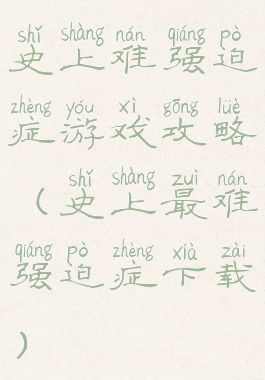 shǐ shàng nán qiáng pò
史上难强迫
zhèng yóu xì gōng lüè
症游戏攻略
shǐ shàng zuì nán
(史上最难
qiáng pò zhèng xià zài
强迫症下载
)